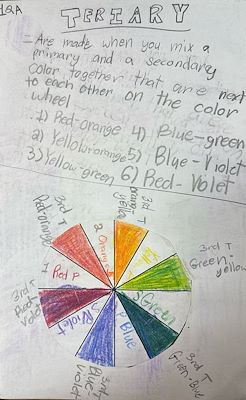 1QA
TERIARY
= Are made when you mix a
primary and a secondary
color together that are next
to each other on the color
wheel
1) Red-orange 4) Blue-green
2) Yelloborange 5) Blue-Violet
3) Yellow-green 6) Red-Volet
3rd T
orang
yellow
3rd T
Red-orange
2
Orange
3rd T
Green-
yellow
1
Red P
3rd T
Red-
Volet
Green
P Blue
Violet
3rd T
Blue-
Violet
3rd T
Green-Blue